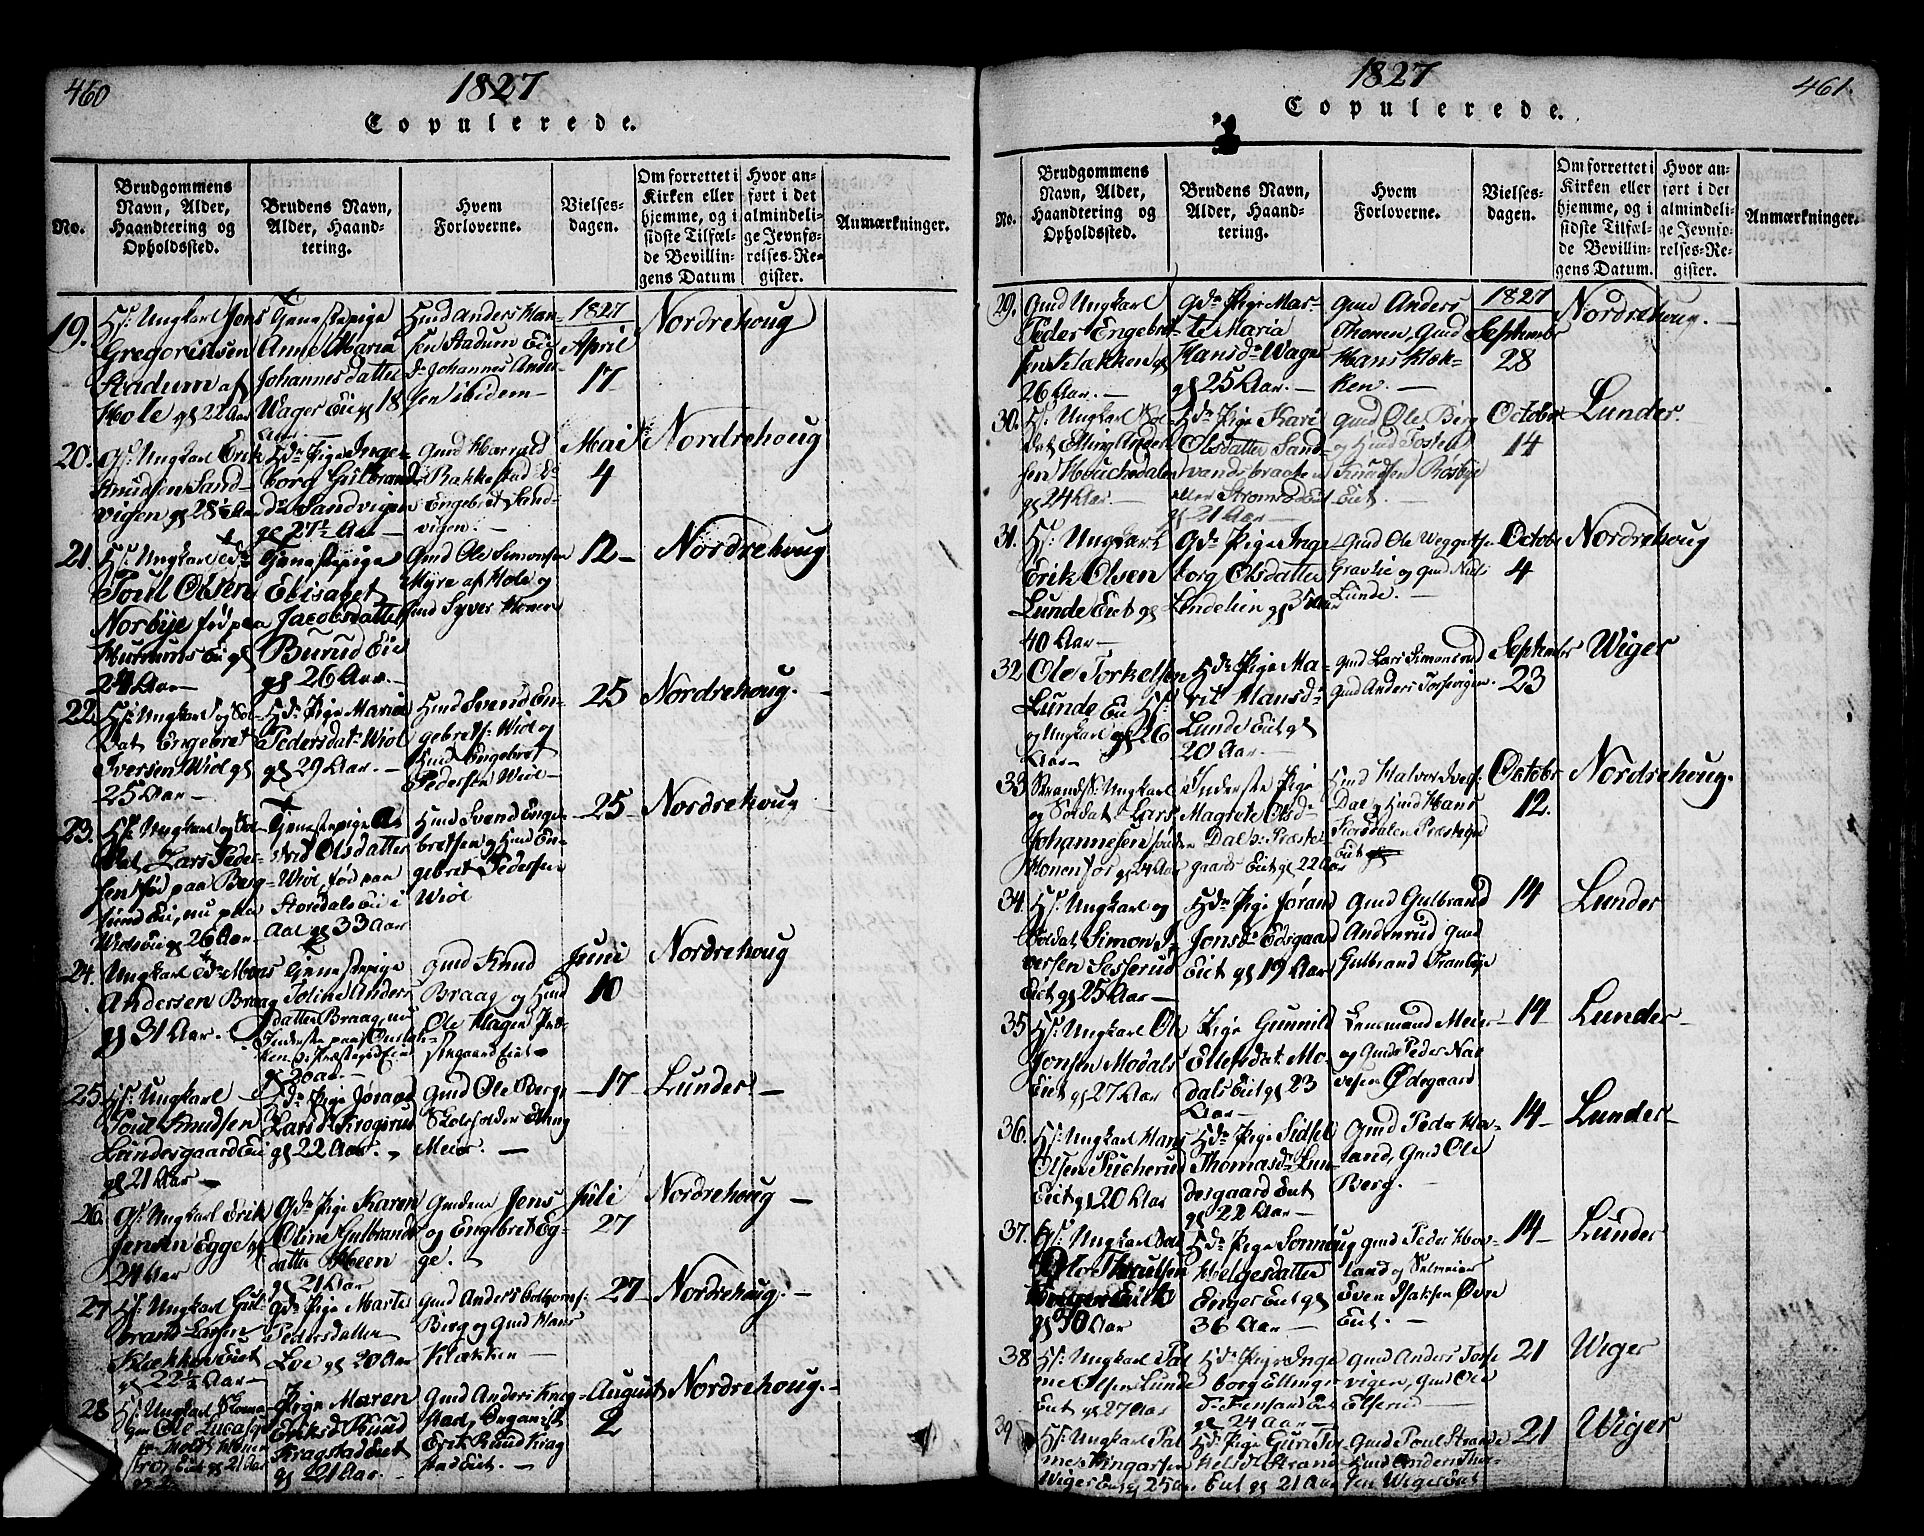 460
1827
Copulerede.
No.
Brudgommens
Navn, Alder,
Haandtering og
Opholdssted.
Brudens Navn,
Alder, Haand-
tering.
Hvem
Forloverne.
Vielses-
dagen.
Om forrettet i
Kirken eller
hjemme, og i
sidste Tilfæl-
de Bevillin-
gens Datum
Hvor an-
ført i det
almindeli-
ge Jevnfø-
relses-Re-
gister.
Anmærkninger.
19.
Ungkarl Jens
Gregoriusen
Stadum af
Hole gl 22 Aar
Tjenestepige
Anne Maria
Johannesdatter
Wager Eie gl 18
Aar.
Huusmd Anders Han-
sen Stadum Eie
Johannes Ander-
sen ibidem
1827
April
17
Nordrehoug
20.
Ungkarl Erik
Knudsen Sand-
vigen gl 28 Aar
Pige Inge-
borg Gulbrands
Sandvigen
gl 27½ Aar
Gmd Harald
Rakkestad
Engebret Sand-
vigen.
Mai
4
Nordrehoug
21.
Ungkarl
Poul Olsen
Norbye fød paa
Eie gl
24 Aar
Tjenestepige
Elisabet
Jacobsdatter
Burud Eie
gl 26 Aar.
Gmd Ole Simonsen
Myre af Hole og
Gmd Syver Honen
12
Nordrehoug
22.
Ungkarl og Sol-
dat Engebret
Iversen Wiol gl
25 Aar
Pige Maria
Pedersdat. Wiol
gl 29 Aar.
Huusmd Svend En-
gebrets. Wiol og
Engebret
Pedersen Wiol
25
Nordrehoug.
23.
Ungkarl og Sol-
dat Lars Peder-
sen fød paa Berg-
sund Eie, nu paa
Wiols Eie gl 26 Aar
Tjenestepige
Olsdatter
Wiol, fød paa
Storedals Eie i
Aal gl 33 Aar
Svend Enge-
bretsen og En-
gebret Pedersen
Wiol
25
Nordrehoug
24.
Ungkarl
Andersen Braag
gl 31 Aar.
Tjenestepige
Anders
datter Braag, nu
gl 20 Aar.
Gmd Knud
Braag og
Ole Hagen Præ-
stegaard Eiet
Juni
10
Nordrehoug
25.
Ungkarl
Poul Knudsen
Lundesgaard Eie
gl 21 Aar
Pige Jørand
Larsd. Krogsrud
gl 22 Aar.
Gmd Ole Berg
Skoleholder Elling
Meier.
17
Lunder
26.
Ungkarl Erik
Jensen Egge gl
24 Aar
Pige Karen
Oline Gulbrands
datter Heen
gl 21 Aar
Gmdene Jens
og Engebret Eg-
ge.
Juli
27
Nordrehoug
27.
Ungkarl Gul-
brand Larsen
Klækken Eiet
gl 22½ Aar
Pige Marte
Pedersdatter
Loe gl 20 Aar
Gmd Anders
Berg og Gmd Hans
Klækken
27
Nordrehoug.
28
Ungkarl
Ole Lucas
Eiet gl 21 Aar
Pige Maren
Eriksd. Rund
Kragstad Eiet
gl 21 Aar.
Gmd Anders Krag-
stad, Organist
Erik Rund Krag
stad Eiet.
August
2
Nordrehoug.
461.
1827
Copulerede.
No.
Brudgommens
Navn, Alder,
Haandtering og
Opholdssted.
Brudens Navn,
Alder, Haand-
tering.
Hvem
Forloverne.
Vielses-
dagen.
Om forrettet i
Kirken eller
hjemme, og i
sidste Tilfæl-
de Bevillin-
gens Datum.
Hvor an-
ført i det
almindeli-
ge Jevnfø-
relses-Re-
gister.
Anmærkninger.
29.
Gmd Ungkarl
Peder Engebret
sen Klækken gl
26 Aar.
Pige Mar-
te Maria
Hansd. Wager
gl 25 Aar.
Gmd Anders
Thonen, Gmd
Hans Klæk-
ken.
1827
September
28
Nordrehoug.
30.
Ungkarl Sol-
dat Elling Ander-
sen
gl 24 Aar
Pige Kari
Olsdatter Sand-
vandsbraaten
eller Strømsod Eiet
gl 21 Aar
Gmd Ole Berg
og Tosten
Knudsen Røsbye
Eiet.
October
14
Lunder.
31.
Ungkarl
Erik Olsen
Lunde Eiet gl
40 Aar
Pige Inge-
borg Olsdatter
Lundelien gl 35 Aar
Gmd Ole
og Gmd Niels
Lunde.
October
4
Nordrehoug
32
Ole Torkelsen
Lunde Eie
og Ungkarl gl 26
Aar
Pige Ma-
rit Hansd.
Lunde Eiet gl
20 Aar.
Gmd Lars Simonsrud
Gmd Anders Torsevigen.
September
23
Wiger
33
Ungkarl
og Soldat Lars
Johannesen
Honen gl 24 Aar
Inderste Pige
Magrete Olsd.
Dal Præste-
gaards Eiet gl 22 Aar
Halvor
Dal og Hans
Præstegrd
Eiet
October
12.
Nordrehoug.
34.
Ungkarl og
Soldat Simon I-
versen Sesserud
Eiet gl 25 Aar
Pige Jørand
Jonsd. Eidsgaard
Eiet gl 19 Aar
Gmd Gulbrand
Anderrud Gmd
Gulbrand Tranbye
14
Lunder
35
Ungkarl Ole
Jonsen Modals
Eiet gl 27 Aar
Pige Gunnild
Ellefsdat. Mo-
dals Eiet gl 23
Aar
Lensmand Meier
og Gmd Peder Nar
vesen Ødegaard
14
Lunder
36.
Ungkarl Hans
Olsen Sucherud
Eiet gl 20 Aar
Pige Sidsel
Thomasd. Lun-
desgaard Eiet
gl 22 Aar
Gmd Peder Ha-
land, Gmd Ole
Berg.
14
Lunder
37.
Ungkarl
Ole
Enger Eiet
gl 30 Aar
Pige Sonnoug
Helgesdatter
Enger Eiet gl
36 Aar
Gmd Peder Haa-
land og
Even Isaksen Øvre
Eiet.
14
Lunder
38
Ungkarl Pal-
me Olsen Lunde
Eiet gl 27 Aar
Pige Inge
borg Ellings
gl 24 Aar
Gmd Anders Torse
vigen, Gmd Ole
Elserud
21
Wiger
39
Ungkarl Pal-
me Ringarsen
Wiger Eiet gl 25 Aar
Pige Guri Tor
kelsd. Strand
Eiet gl 21 Aar
Gmd Poul Strande
Anders Thor-
sen Wiger Eiet
21
Wiger